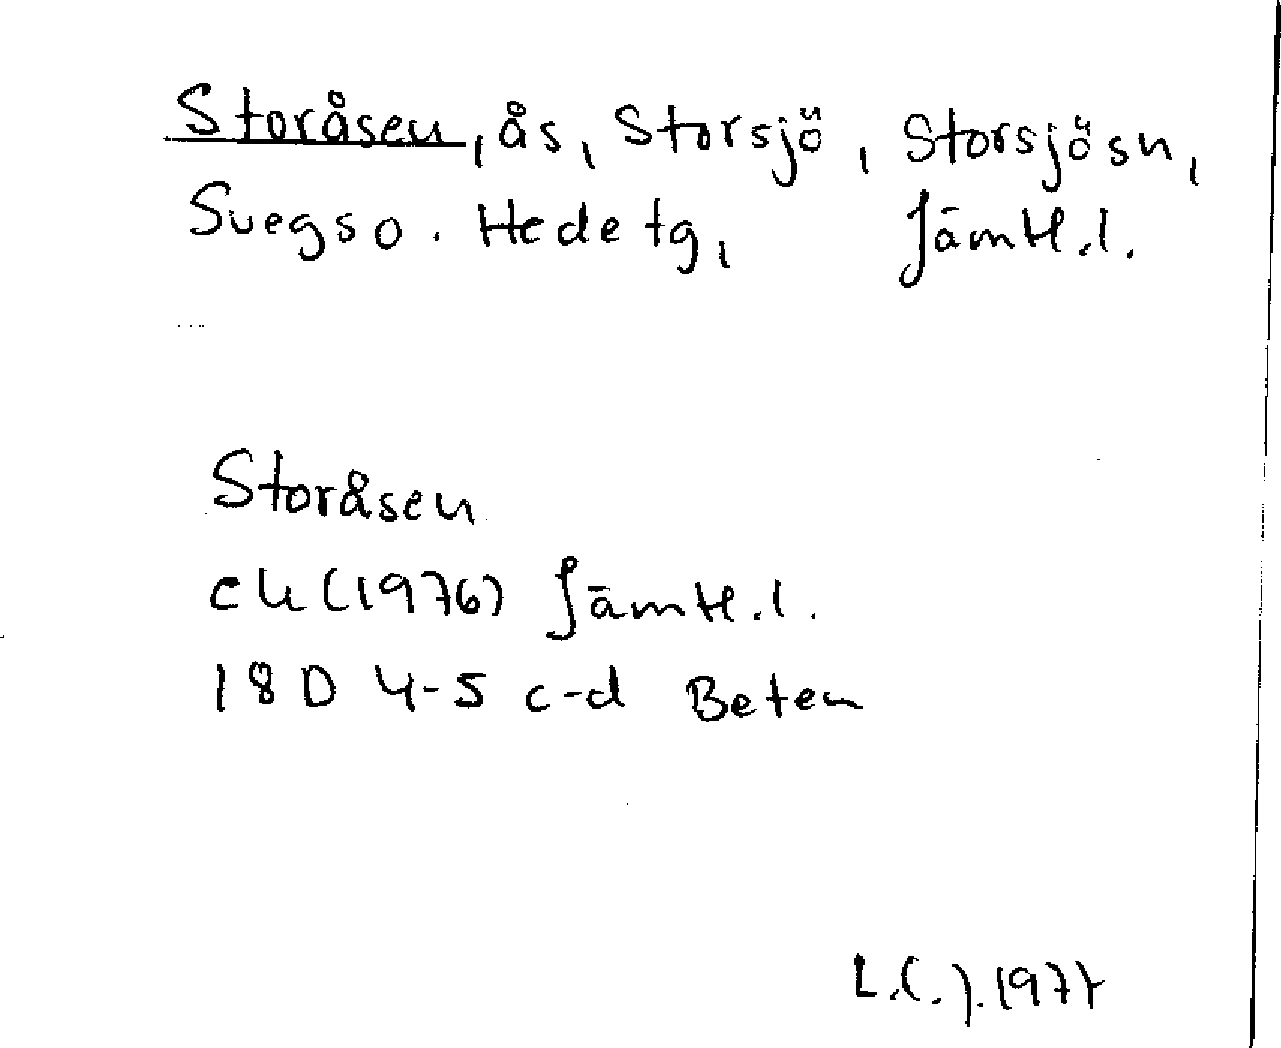 Storåsen, ås, Storsjö, Storsjösn,
Svegs o. Hede tg, Jämtl.l.
Storåsen
ek (1976) Jämtl.l.
18D 4-5 c-d Beten
L.C.J. 1977